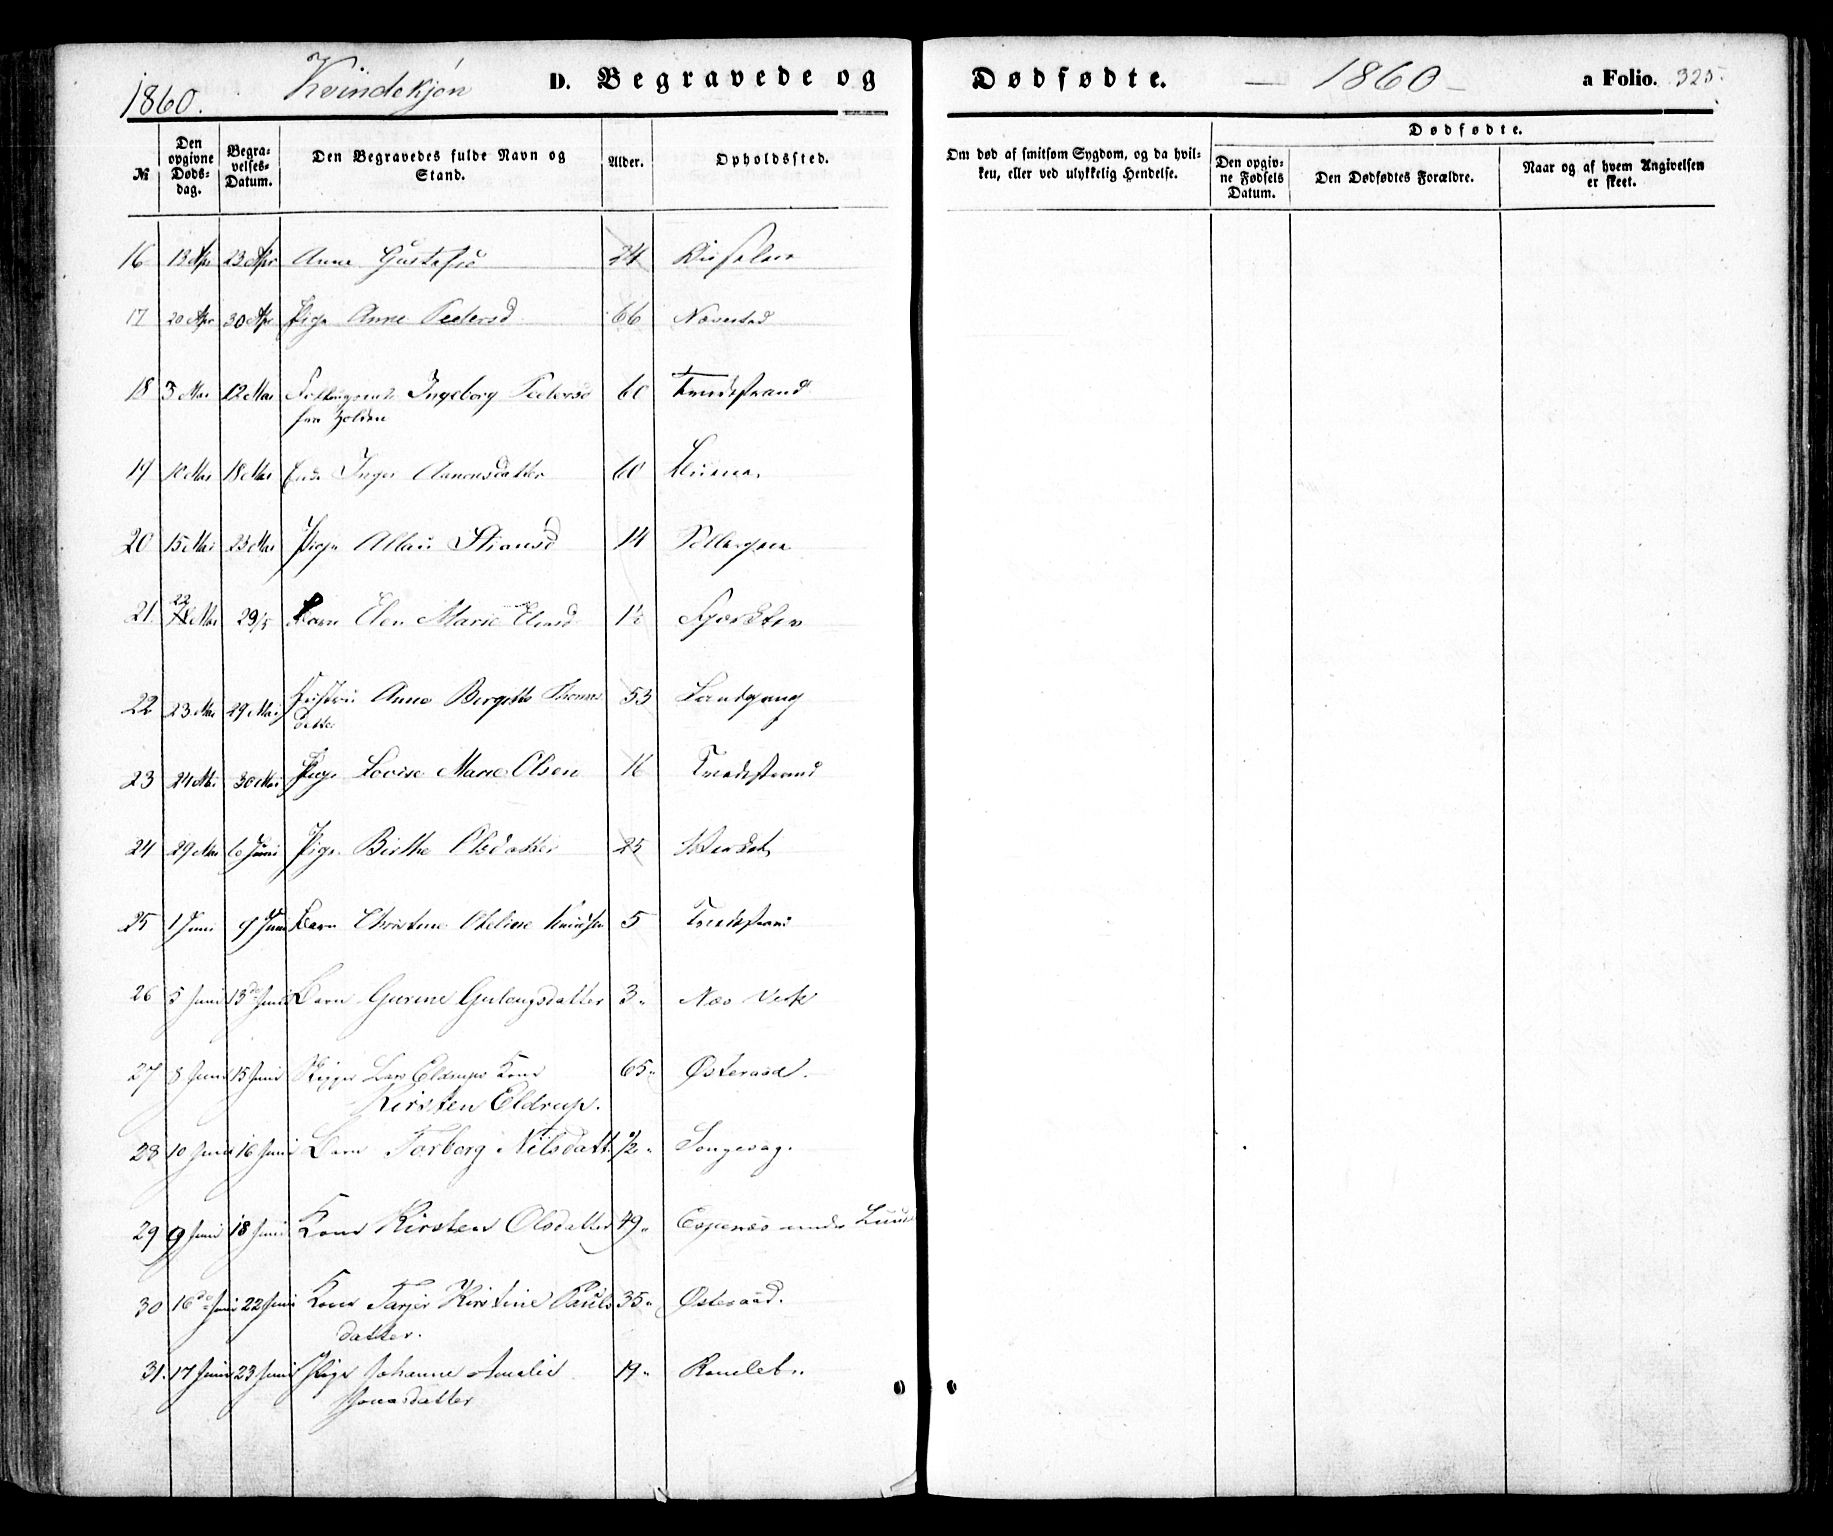 1860. Kvindekjøn D. Begravede og Dødfødte. — 1860 — a Folio. 325.
№ Den opgivne Døds-dag. Begra-velses-Datum. Den Begravedes fulde Navn og Stand. Alder. Opholdssted. Om død af smitsom Sygdom, og da hvil-ken, eller ved ulykkelig Hendelse. Dødfødte. Den opgiv-ne Fødsels Datum. Den Dødfødtes Forældre. Naar og af hvem Angivelsen er skeet.
16 18 Apr 23 Apr Anna 24
17 20 Apr 30 Apr Pige Anne Pedersd 66 Næsverket
18 3 Mai 12 Mai Ingeborg Pedersd 60 Tvedestrand
fra Holden
19 10 Mai 18 Mai Inger 60
20 15 Mai 23 Mai Pige 14
21 22 Mai 29/5 Barn Elen Marie 1½
22 23 Mai 29 Mai Anne Bergitte Thomas 53 Sandgang
datter
23 24 Mai 30 Mai Pige Lovise Marie Olsen 16 Tvedestrand
24 29 Mai 6 Juni Pige Birthe Olsdatter 25
25 1 Juni 9 Juni Barn Christine Oteline Knudsen 5 Tvedestrand
26 5 Juni 13de Juni Barn Gurine Gulaugsdatter 3 " Næs Verk
27 8 Juni 15 Juni Skipper Lars Eldrups Kone 65 " Østeraad.
Kirsten Eldrup.
28 10 Juni 16 Juni Barn Torborg Nilsdatt. ½ " Songevaag.
29 9 Juni 18 Juni Kone Kirsten Olsdatter 49 " Espenæs under
30 16de Juni 22 Juni Kone Tarjer Kirstine Pauls 35 " Østeraad.
datter.
31. 17 Juni 23 Juni Pige Johanne Amalie 19 "
Jonasdatter